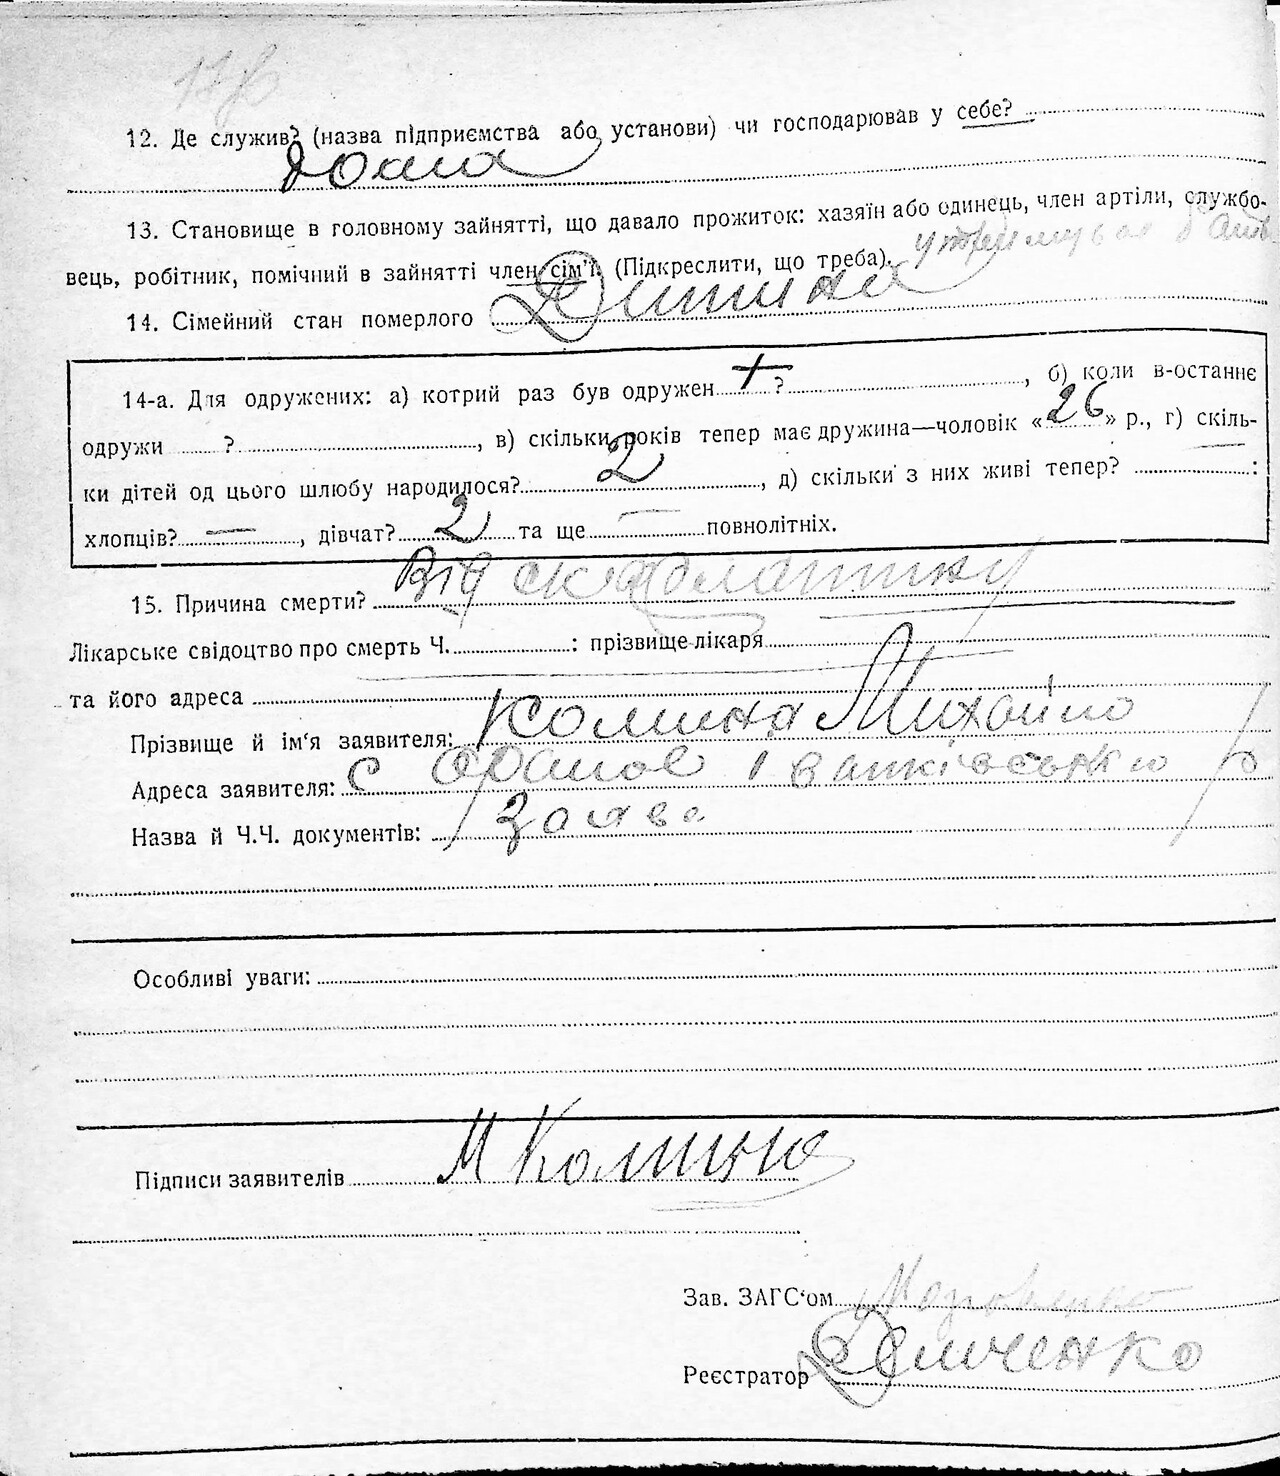 12. Де служив? (назва підприємства або установи) чи господарював у себе?
дома
13. Становище в головному зайнятті, що давало прожиток: хазяїн або одинець, член артіли, службо-
вець, робітник, помічний в зайнятті член сім'ї. (Підкреслити, що треба).
14. Сімейний стан померлого Дитина
14-а. Для одружених: а) котрий раз був одружен + ?, б) коли в-останнє
одружи ?, в) скільки років тепер має дружина—чоловік «26» р., г) скіль-
ки дітей од цього шлюбу народилося? 2, д) скільки з них живі тепер? — :
хлопців? —, дівчат? 2 та ще — повнолітніх.
15. Причина смерти? Від скарлатини
Лікарське свідоцтво про смерть Ч. : прізвище лікаря
та його адреса
Прізвище й ім'я заявителя: Колина Михайло
Адреса заявителя: с Іванківського р
Назва й Ч.Ч. документів: Заява
Особливі уваги:
Підписи заявителів М Колина
Зав. ЗАГС'ом
Реєстратор Демченко